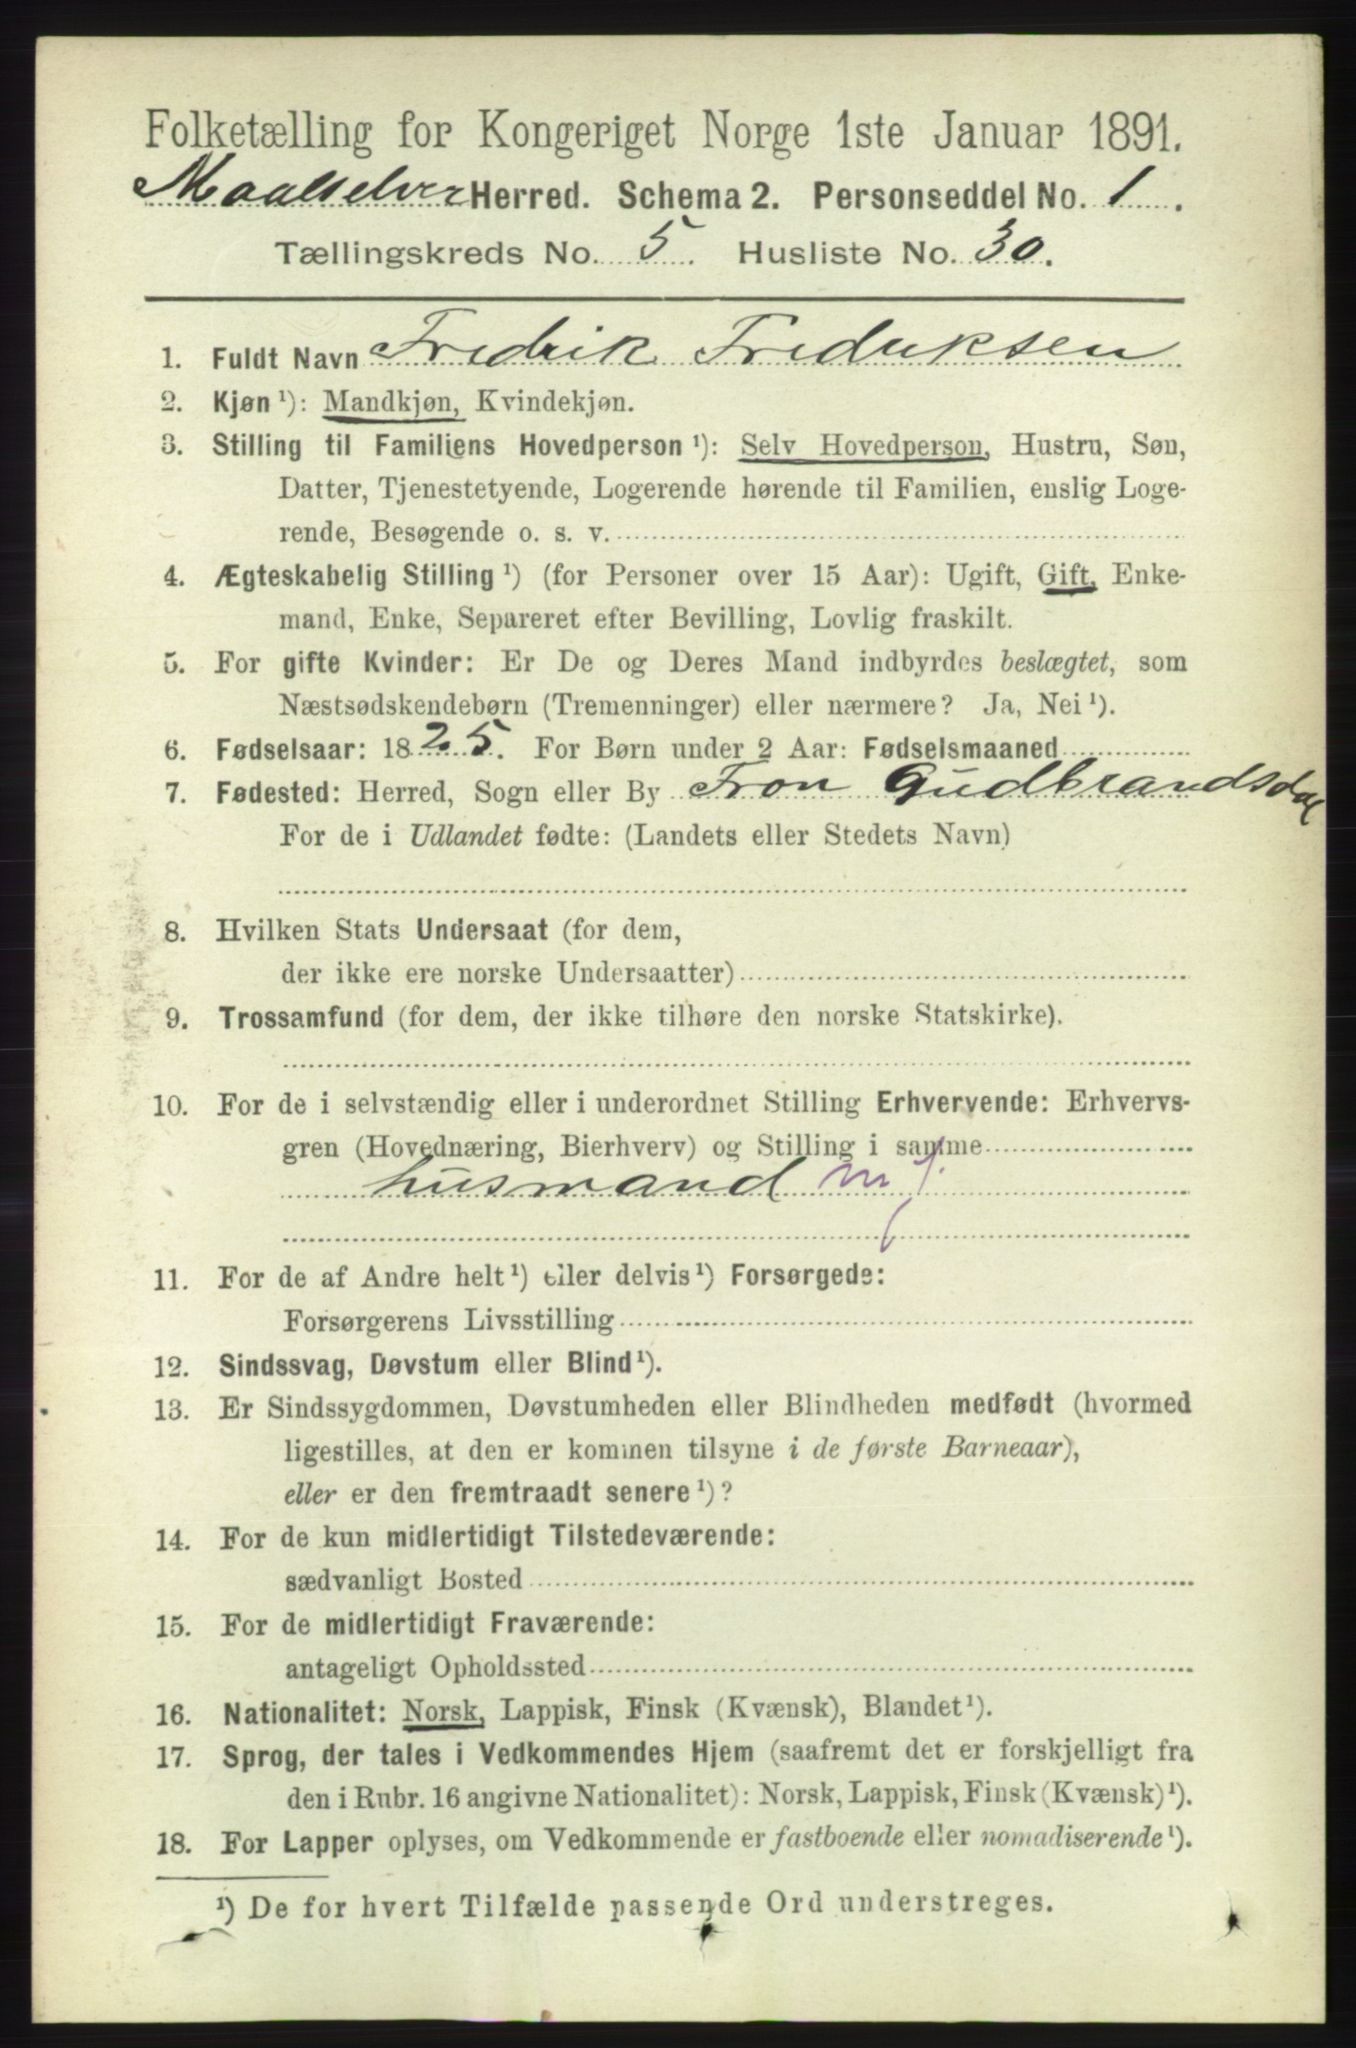 Folketælling for Kongeriget Norge 1ste Januar 1891.
Maalselven Herred. Schema 2. Personseddel No. 1.
Tællingskreds No. 5. Husliste No. 30.
1. Fuldt Navn Fredrik Fredriksen
2. Kjøn ¹): Mandkjøn, Kvindekjøn.
3. Stilling til Familiens Hovedperson ¹): Selv Hovedperson, Hustru, Søn,
Datter, Tjenestetyende, Logerende hørende til Familien, enslig Loge-
rende, Besøgende o. s. v.
4. Ægteskabelig Stilling ¹) (for Personer over 15 Aar): Ugift, Gift, Enke-
mand, Enke, Separeret efter Bevilling, Lovlig fraskilt.
5. For gifte Kvinder: Er De og Deres Mand indbyrdes beslægtet, som
Næstsødskendebørn (Tremenninger) eller nærmere? Ja, Nei ¹).
6. Fødselsaar: 1825. For Børn under 2 Aar: Fødselsmaaned
7. Fødested: Herred, Sogn eller By Fron Gudbrandsdal
For de i Udlandet fødte: (Landets eller Stedets Navn)
8. Hvilken Stats Undersaat (for dem,
der ikke ere norske Undersaatter)
9. Trossamfund (for dem, der ikke tilhøre den norske Statskirke).
10. For de i selvstændig eller i underordnet Stilling Erhvervende: Erhvervs-
gren (Hovednæring, Bierhverv) og Stilling i samme
husmand m j.
11. For de af Andre helt ¹) eller delvis ¹) Forsørgede:
Forsørgerens Livsstilling
12. Sindssvag, Døvstum eller Blind ¹).
13. Er Sindssygdommen, Døvstumheden eller Blindheden medfødt (hvormed
ligestilles, at den er kommen tilsyne i de første Barneaar),
eller er den fremtraadt senere ¹)?
14. For de kun midlertidigt Tilstedeværende:
sædvanligt Bosted
15. For de midlertidigt Fraværende:
antageligt Opholdssted
16. Nationalitet: Norsk, Lappisk, Finsk (Kvænsk), Blandet ¹).
17. Sprog, der tales i Vedkommendes Hjem (saafremt det er forskjelligt fra
den i Rubr. 16 angivne Nationalitet): Norsk, Lappisk, Finsk (Kvænsk) ¹).
18. For Lapper oplyses, om Vedkommende er fastboende eller nomadiserende ¹).
¹) De for hvert Tilfælde passende Ord understreges.